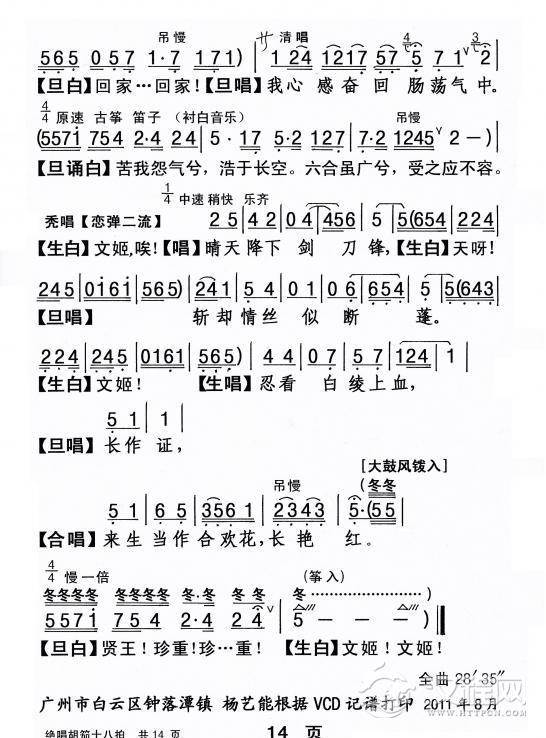 吊慢 サ清唱
565 057 1·7 171) | 124 1217 57 5 71ⱽ 2
【旦白】回家…回家!【旦唱】我心 感奋 回 肠荡气 中。
4/4 原速 古筝 笛子 (衬白音乐) 吊慢
(5571 754 2·4 24 | 5·17 5·2 127 | 5·2 17·2 17·1 1245ⱽ | 2 — )|
【旦诵白】苦我怨气兮，浩于长空。六合虽广兮，受之应不容。
1/4 中速稍快 乐齐
秃唱【恋弹二流】 25 | 42 | 04 | 456 | 5 | 5(654 | 224 |
【生白】文姬,唉!【唱】晴天降下 剑 刀 锋,【生白】天呀!
245 | 0161 | 565) | 241 | 54 | 04 | 654 | 5 | 5(643 |
【旦唱】 斩却情丝 似 断 蓬。
224 | 245 | 0161 | 565) | 51 | 44 | 07 | 57 | 124 | 1 |
【生白】文姬! 【生唱】忍看 白绫上血,
51 | 1 |
【旦唱】长作 证,
[大鼓风拨入]
吊慢 (冬冬
51 | 65 | 3561 | 2343 | 5·(55 |
【合唱】来生 当作 合欢花,长 艳 红。
4/4 慢一倍 (筝入)
冬冬冬冬 冬冬冬冬 冬·冬 冬冬 冬……………………)
5571 754 2·4 24ⱽ | 5 — — ‖
【旦白】贤王! 珍重! 珍…重! 【生白】文姬! 文姬!
全曲 28′35″
广州市白云区钟落潭镇 杨艺能根据 VCD 记谱打印 2011年8月
绝唱胡笳十八拍 共14页 14 页